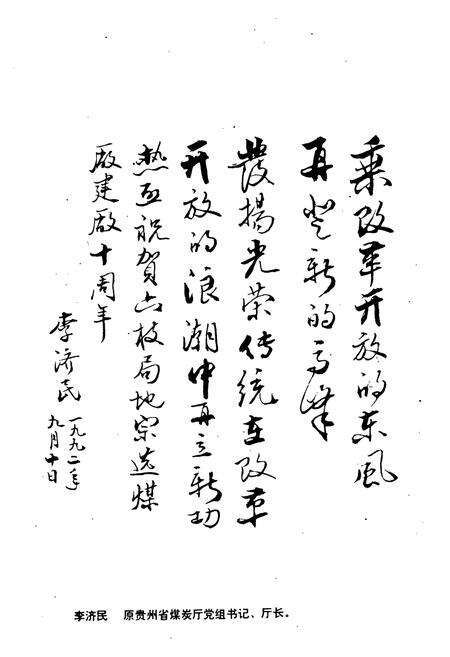 乘改革开放的东風
再登新的高峰
發揚光荣传统在改革
开放的浪潮中再立新功
热烈祝賀六枝局地宗选煤
厰建厰十周年
李济民
一九九二年
九月十日
李济民 原贵州省煤炭厅党组书记、厅长。